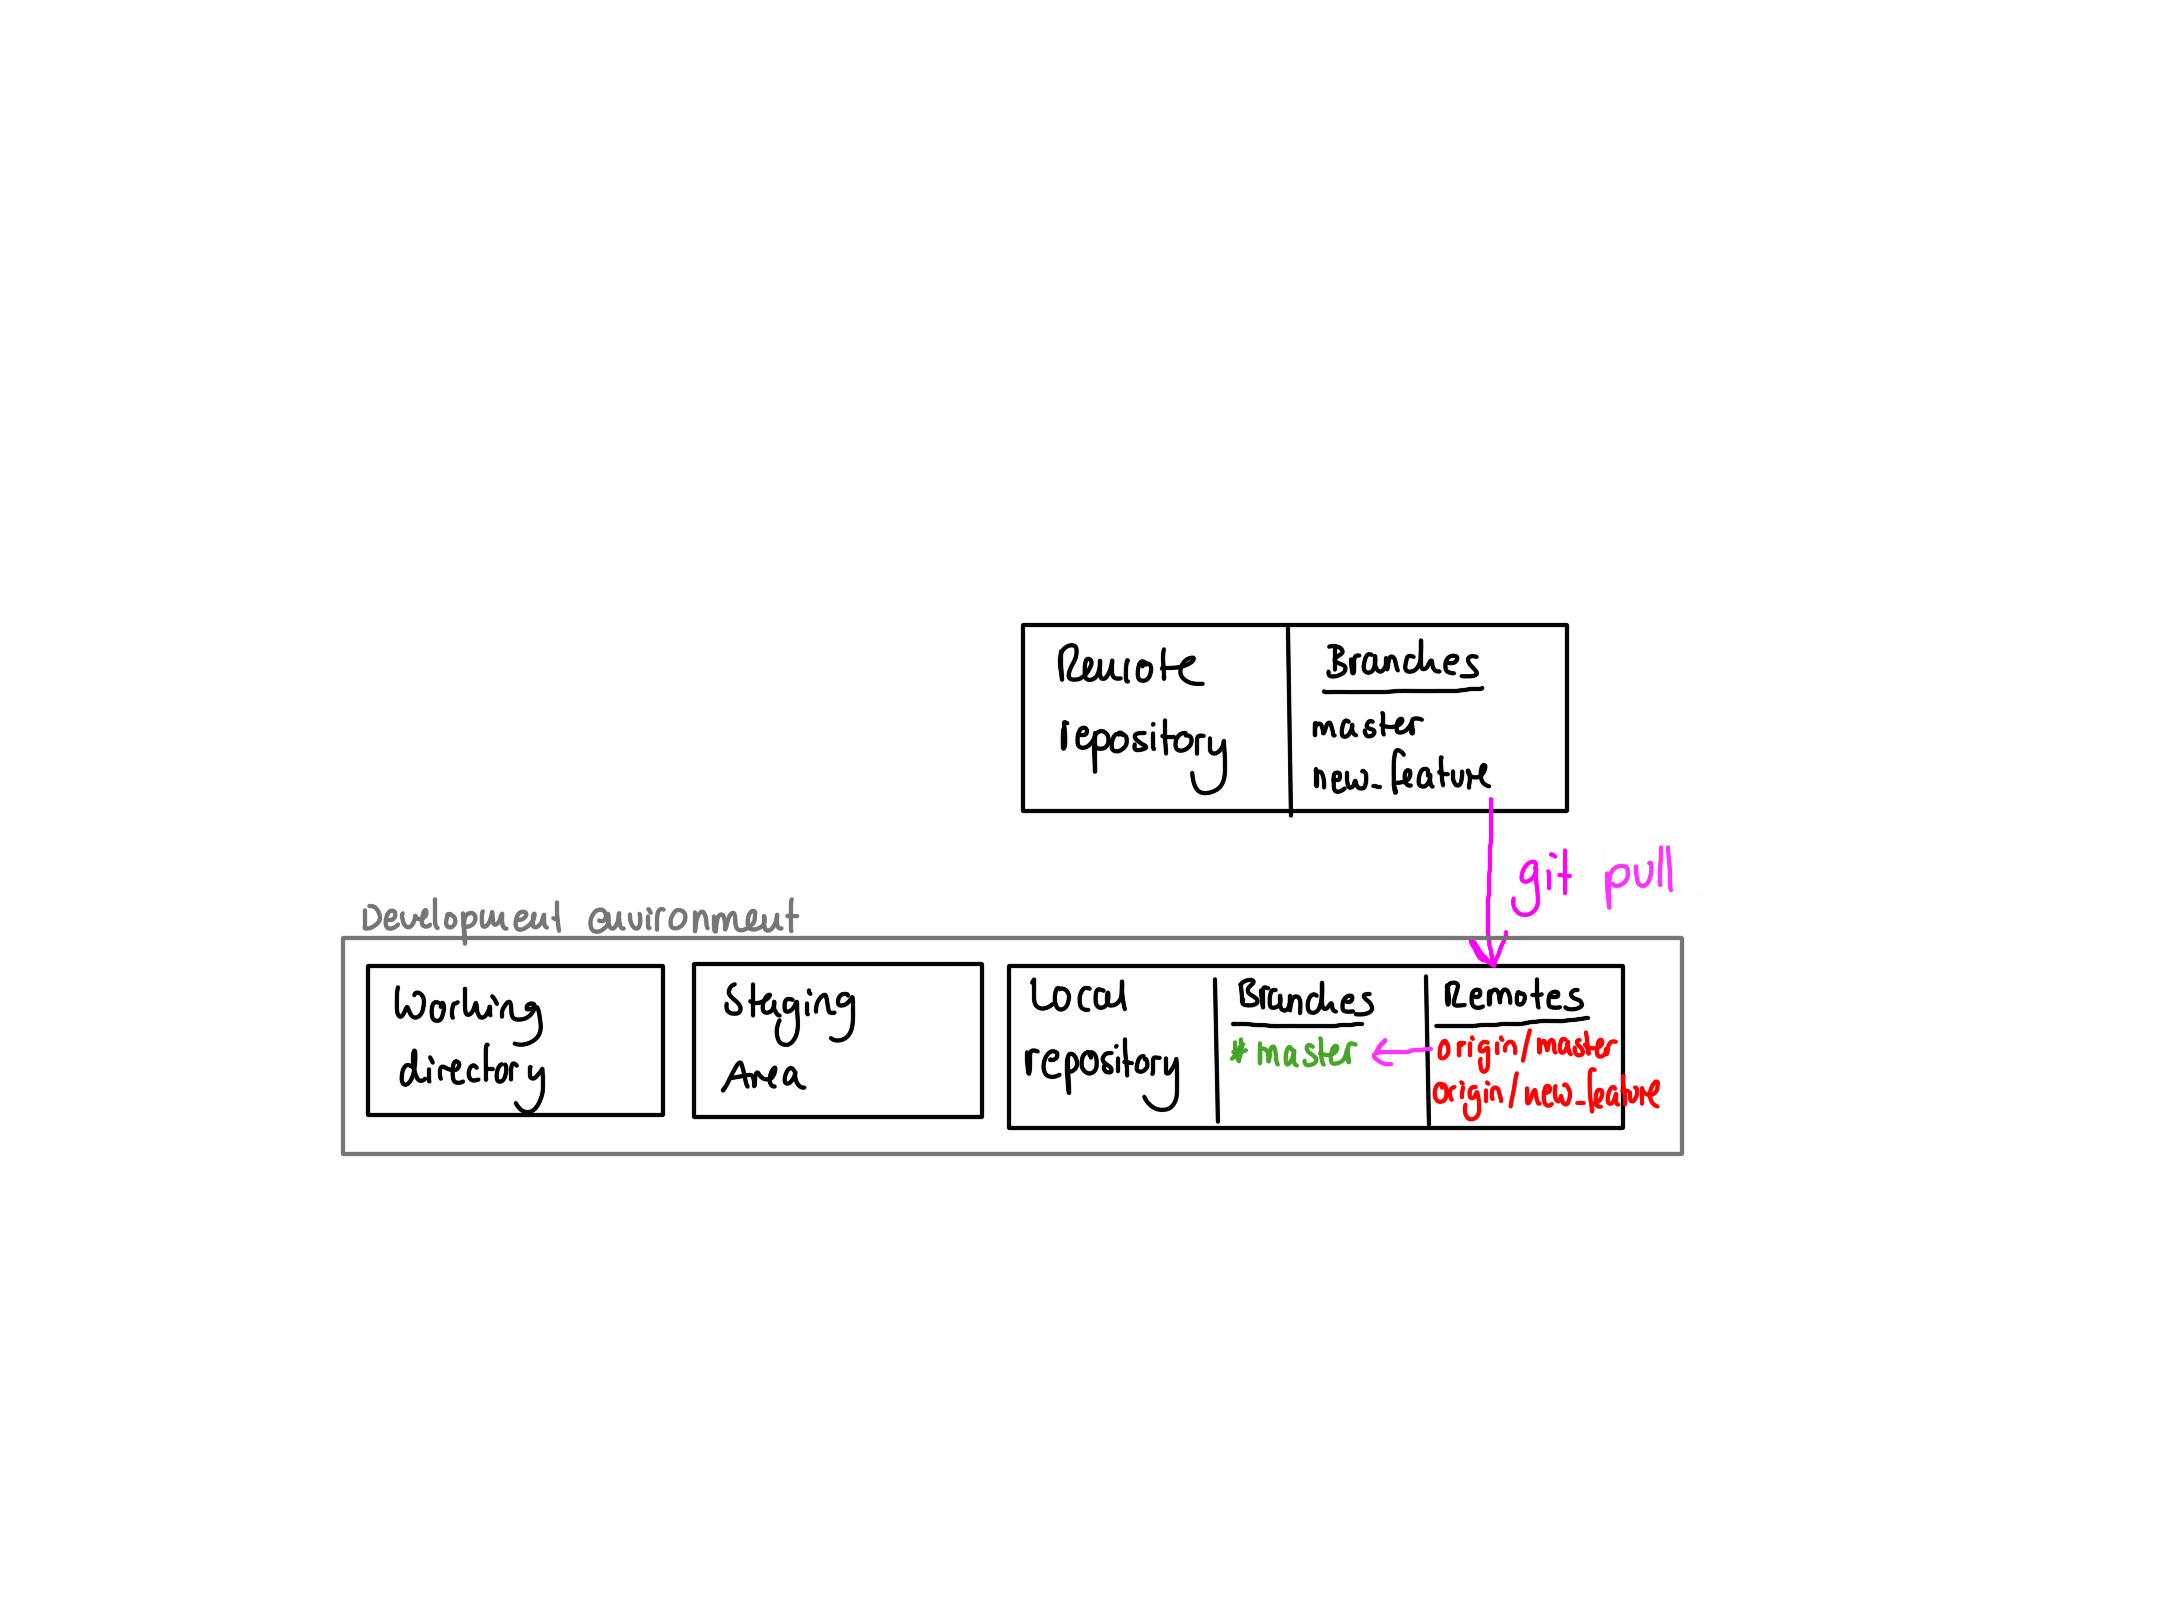 Remote
repository
Branches
master
new_feature
git pull
Development environment
Working
directory
Staging
Area
Local
repository
Branches
* master
Remotes
origin/master
origin/new_feature